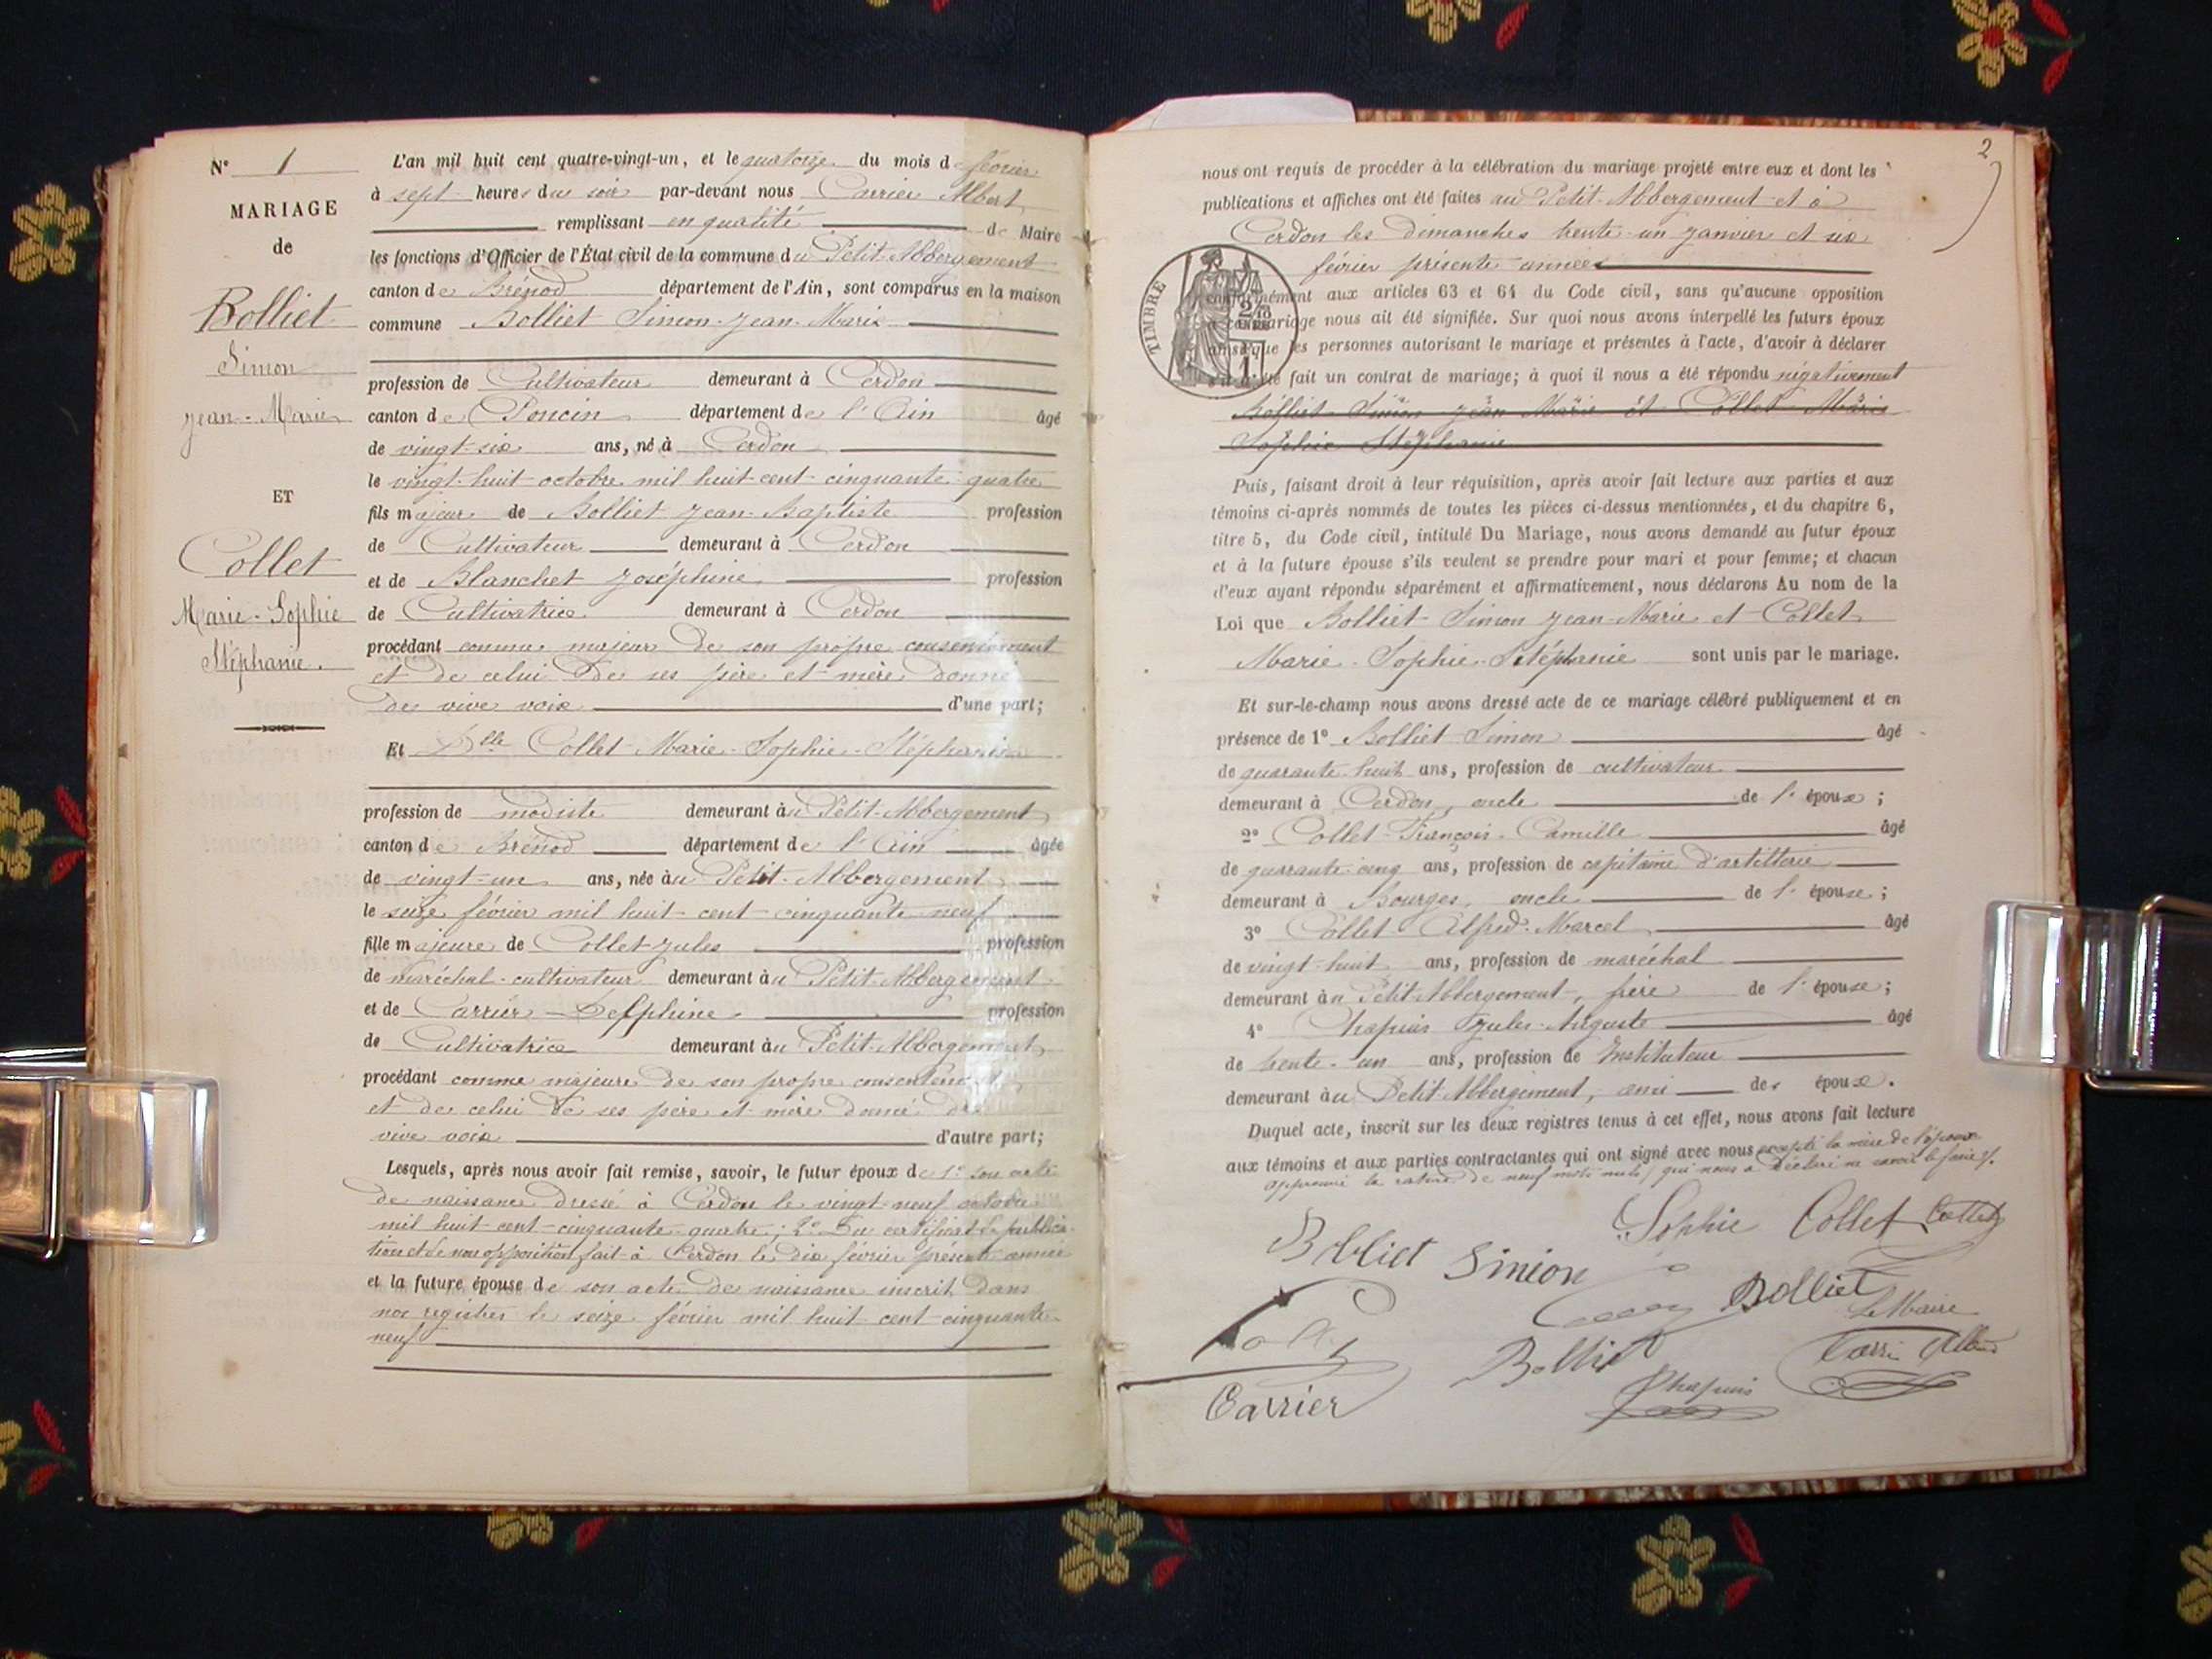 N° 1
MARIAGE
de
Bolliet
Simon
Jean-Marie
ET
Collet
Marie-Sophie
Stéphanie.
L'an mil huit cent quatre-vingt-un, et le quatorze du mois de février
à sept heures du soir par-devant nous Carrier Albert
remplissant en qualité de Maire
les fonctions d'Officier de l'État civil de la commune du Petit-Abbergement
canton de Brénod département de l'Ain, sont comparus en la maison
commune Bolliet Simon-Jean-Marie
profession de Cultivateur demeurant à Cerdon
canton de Poncin département de l'Ain âgé
de vingt-six ans, né à Cerdon
le vingt-huit octobre mil huit cent cinquante quatre
fils majeur de Bolliet Jean-Baptiste profession
de Cultivateur demeurant à Cerdon
et de Blanchet Joséphine profession
de Cultivatrice demeurant à Cerdon
procédant comme majeur de son propre consentement
et de celui de ses père et mère donné
de vive voix d'une part;
Et Dlle Collet Marie-Sophie-Stéphanie
profession de modiste demeurant au Petit-Abbergement
canton de Brénod département de l'Ain âgée
de vingt-un ans, née au Petit-Abbergement
le seize février mil huit cent cinquante neuf
fille majeure de Collet Jules profession
de maréchal-cultivateur demeurant au Petit-Abbergement
et de Carrier Delphine profession
de Cultivatrice demeurant au Petit-Abbergement
procédant comme majeure de son propre consentement
et de celui de ses père et mère donné de
vive voix d'autre part;
Lesquels, après nous avoir fait remise, savoir, le futur époux de 1° son acte
de naissance dressé à Cerdon le vingt-neuf octobre
mil huit cent cinquante quatre; 2° Du certificat de publica-
tion et de non opposition fait à Cerdon le dix février présente année
et la future épouse de son acte de naissance inscrit dans
nos registres le seize février mil huit cent cinquante-
neuf
2
nous ont requis de procéder à la célébration du mariage projeté entre eux et dont les
publications et affiches ont été faites au Petit-Abbergement et à
Cerdon les Dimanches trente-un janvier et six
février présente année
TIMBRE
conformément aux articles 63 et 64 du Code civil, sans qu'aucune opposition
à ce mariage nous ait été signifiée. Sur quoi nous avons interpellé les futurs époux
ainsi que les personnes autorisant le mariage et présentes à l'acte, d'avoir à déclarer
s'il a été fait un contrat de mariage; à quoi il nous a été répondu négativement
Bolliet Simon Jean Marie et Collet Marie
Sophie Stéphanie
Puis, faisant droit à leur réquisition, après avoir fait lecture aux parties et aux
témoins ci-après nommés de toutes les pièces ci-dessus mentionnées, et du chapitre 6,
titre 5, du Code civil, intitulé Du Mariage, nous avons demandé au futur époux
et à la future épouse s'ils veulent se prendre pour mari et pour femme; et chacun
d'eux ayant répondu séparément et affirmativement, nous déclarons Au nom de la
Loi que Bolliet Simon Jean-Marie et Collet
Marie-Sophie-Stéphanie sont unis par le mariage.
Et sur-le-champ nous avons dressé acte de ce mariage célébré publiquement et en
présence de 1° Bolliet Simon âgé
de quarante-huit ans, profession de cultivateur
demeurant à Cerdon, oncle de l'époux;
2° Collet-François-Camille âgé
de quarante-cinq ans, profession de capitaine d'artillerie
demeurant à Bourges, oncle de l'épouse;
3° Collet Alfred-Marcel âgé
de vingt-huit ans, profession de maréchal
demeurant au Petit-Abbergement, frère de l'épouse;
4° Chapuis Jules-Auguste âgé
de trente-un ans, profession de Instituteur
demeurant au Petit Abbergement, ami des époux.
Duquel acte, inscrit sur les deux registres tenus à cet effet, nous avons fait lecture
aux témoins et aux parties contractantes qui ont signé avec nous excepté la mère de l'époux
qui nous a déclaré ne savoir le faire
approuvé la rature de neuf mots nuls
Sophie Collet Collet
Bolliet Simon
Bolliet
Le Maire
Bolliet
Chapuis
Carrier